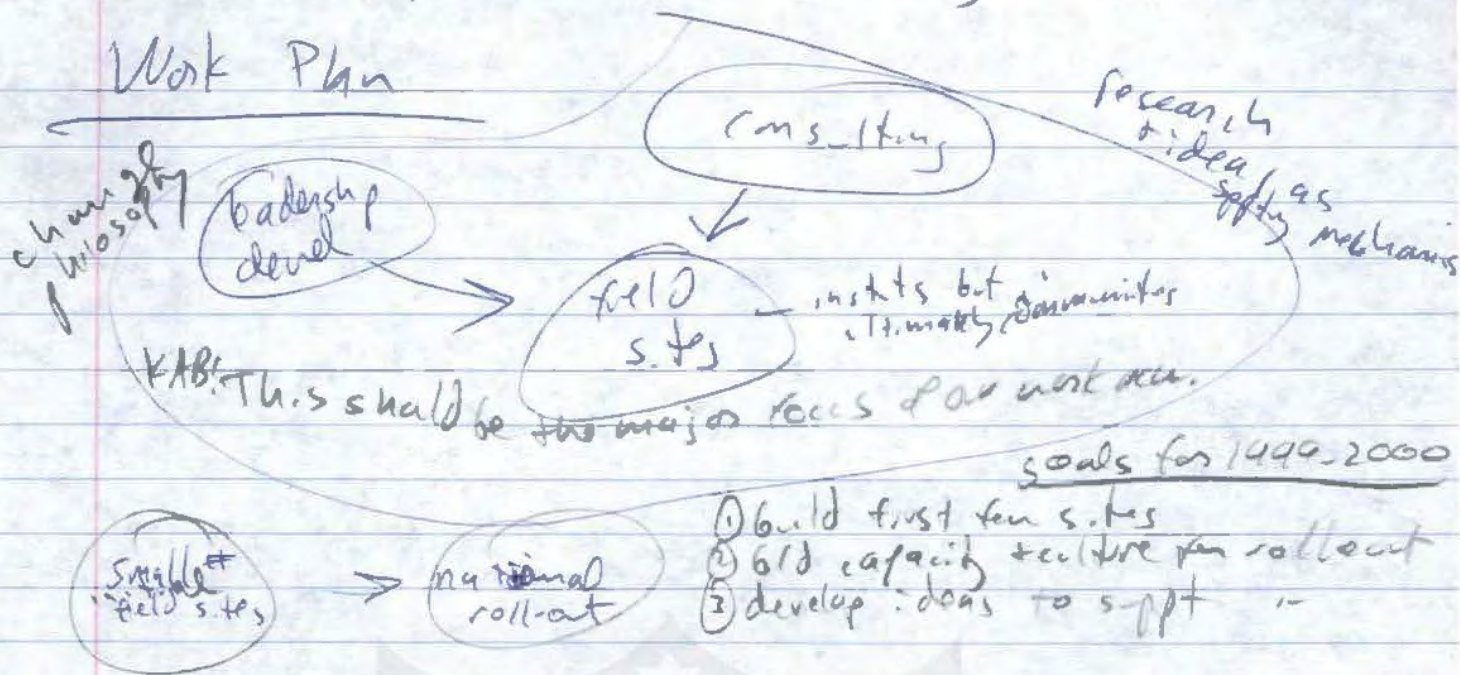 Work Plan
consulting
research
+ ideas as
sptng mechanisms
change
philosophy
leadership
devel
field
sites
— instits but
ultimately communities
KAB: This should be the major focus of our work
goals for 1999-2000
① build first few sites
② bld capacity + culture for rollout
③ develop ideas to suppt "
small #
field sites
national
roll-out